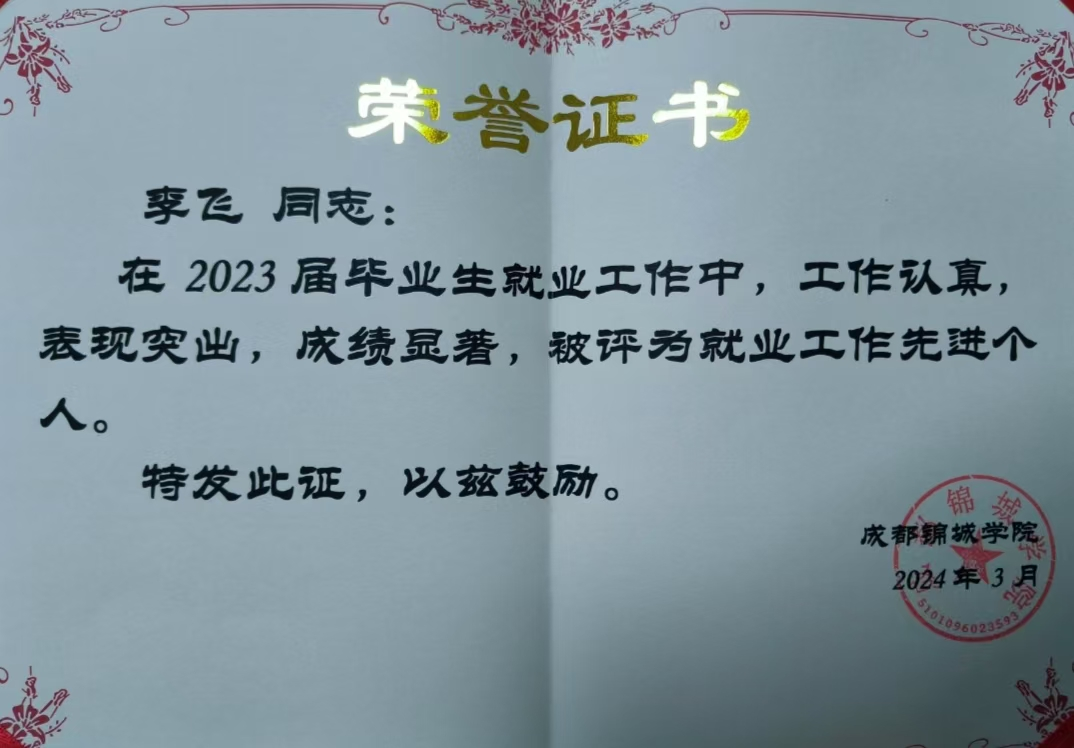 荣誉证书
李飞 同志：
在 2023 届毕业生就业工作中，工作认真，
表现突出，成绩显著，被评为就业工作先进个
人。
特发此证，以兹鼓励。
成都锦城学院
2024 年 3 月
成都锦城学院
5101096023593